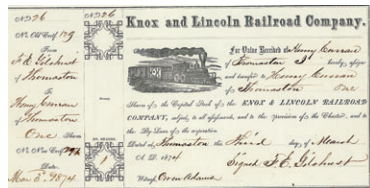 No 226
No Old Cert. 129
From
F. E. Gilchrist
of Thomaston
To
Henry Curran
of Thomaston
One Share
No New Cert.
Date
Mar 3. 1874
No 226
No. SHARES.
1
Knox and Lincoln Railroad Company.
For Value Received of Henry Curran
of Thomaston I hereby assign
and transfer to Henry Curran
of Thomaston One
Share of the Capital Stock of the KNOX & LINCOLN RAILROAD
COMPANY, subject to all assessments, and to the provisions of the Charter, and to
the By-Laws of the corporation.
Dated at Thomaston this Third day of March
A. D. 1874
Signed F. E. Gilchrist
Witness Owen Adams